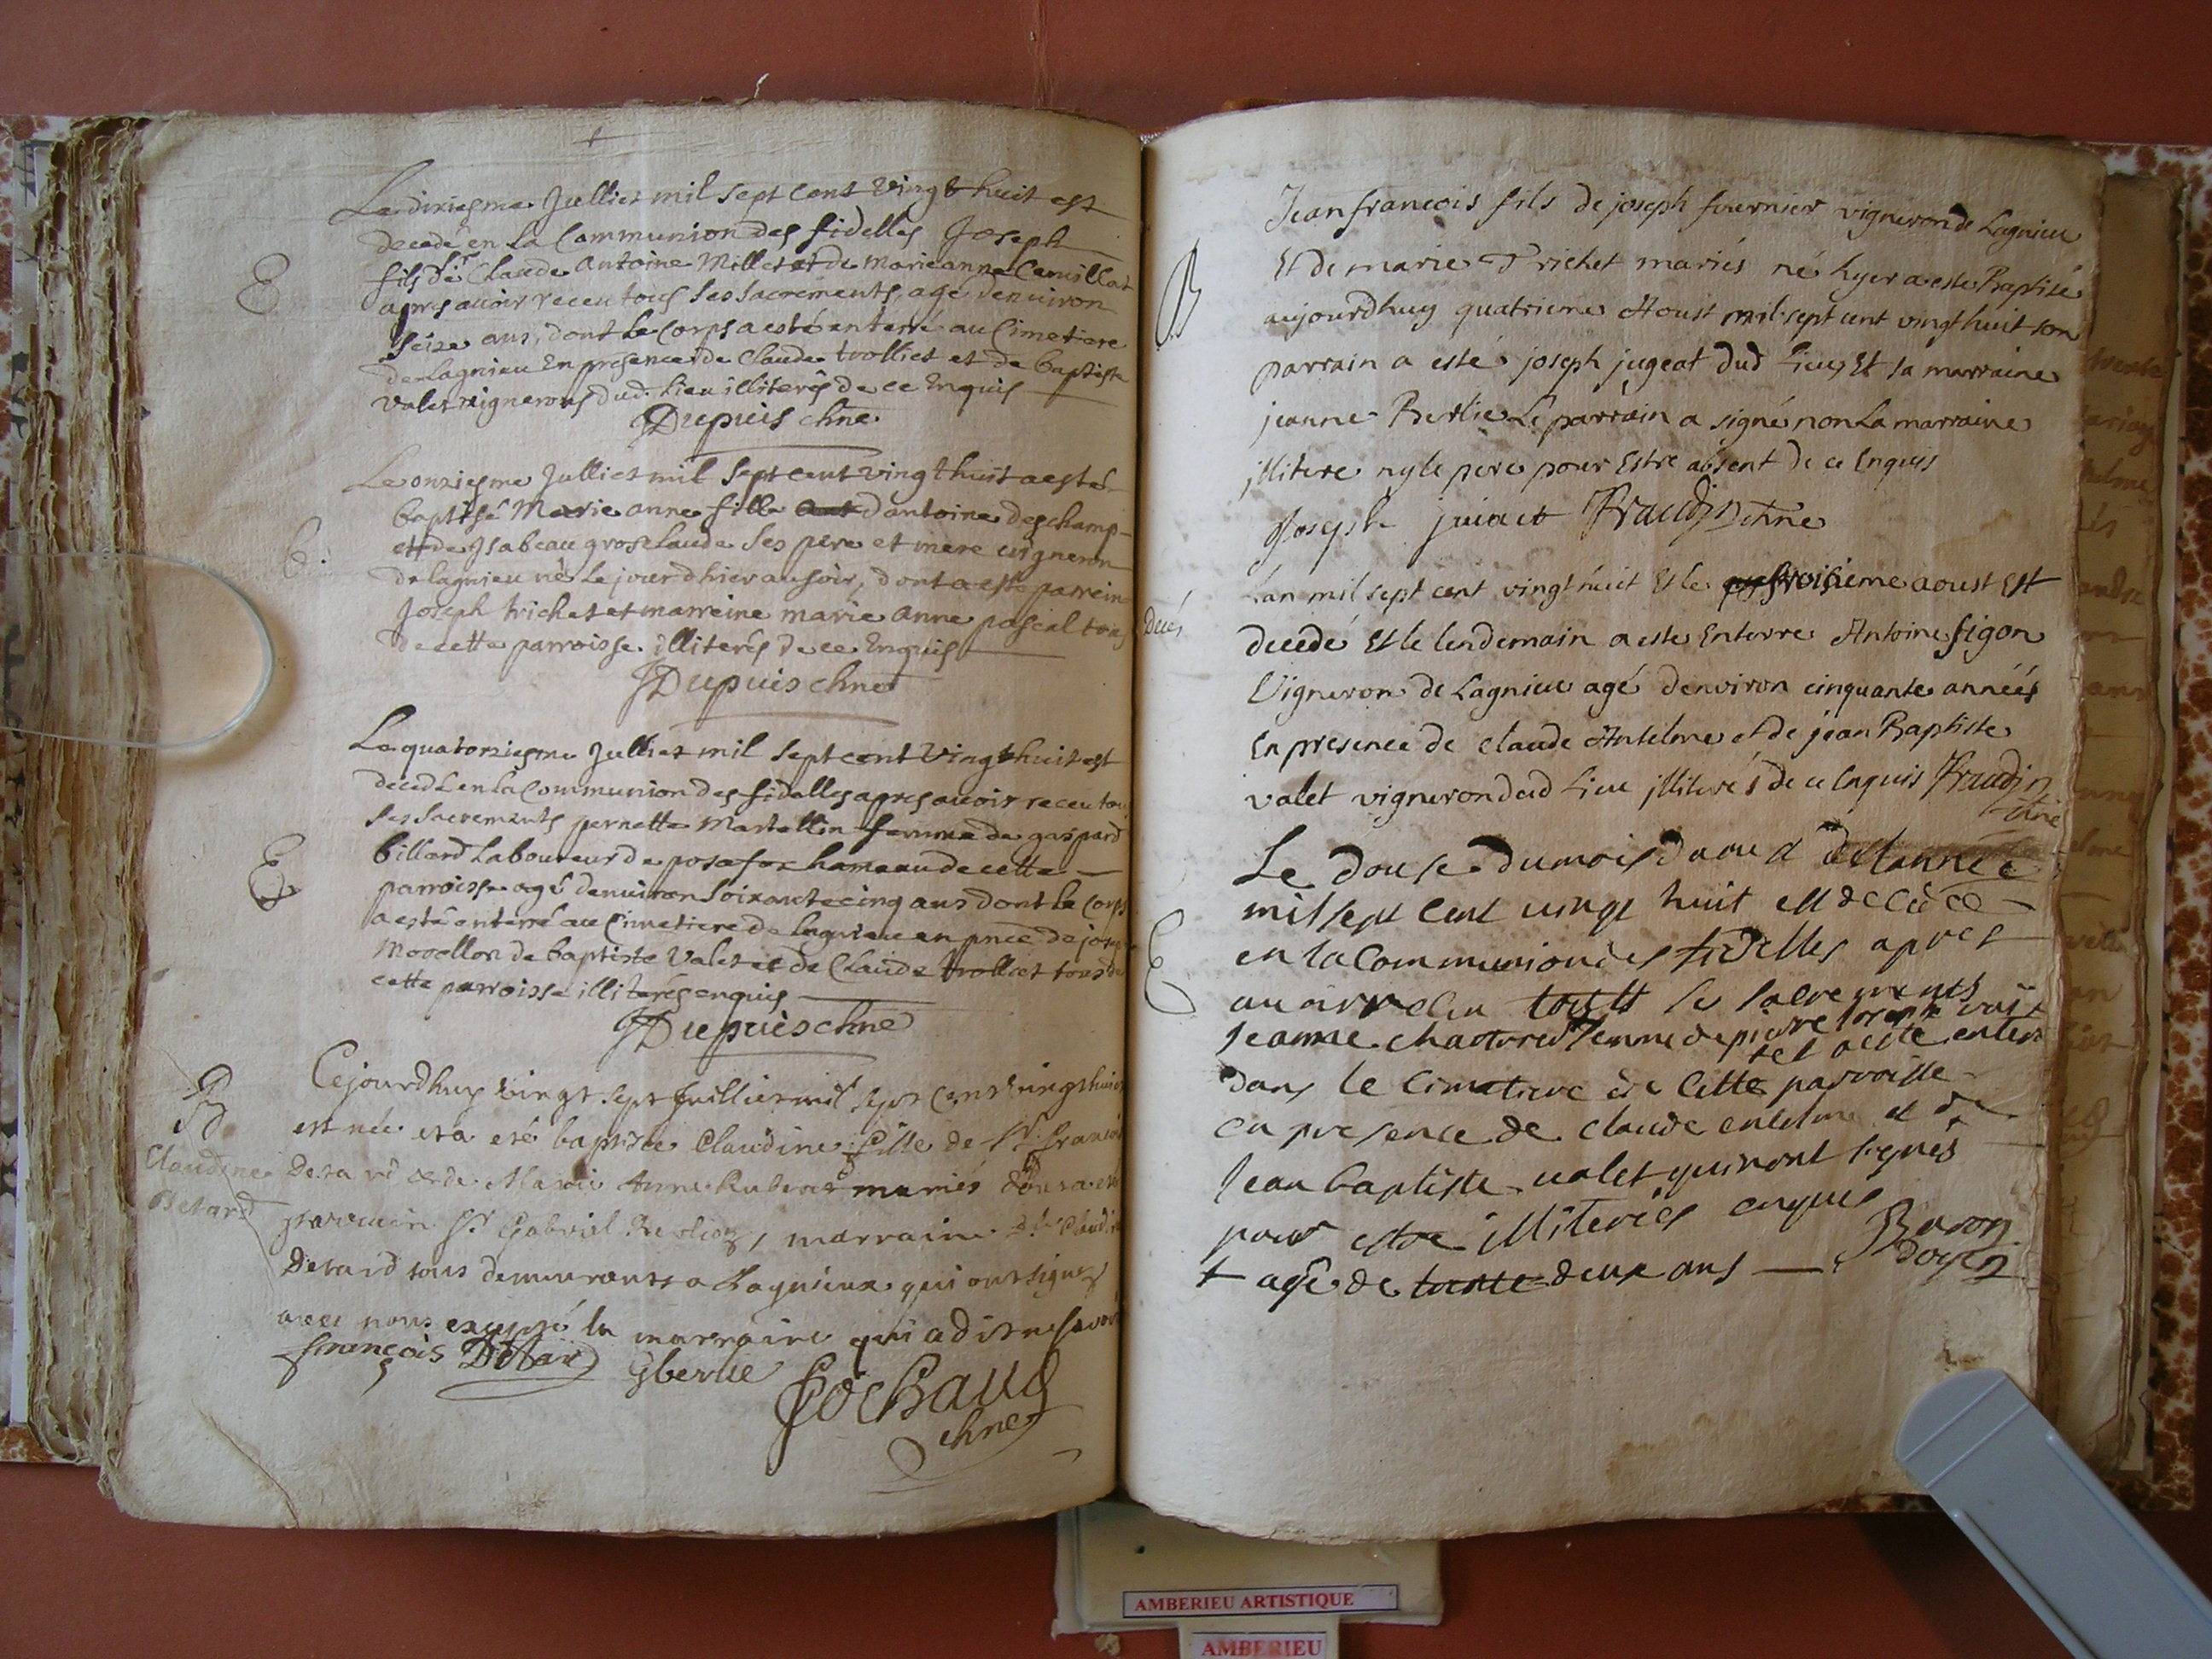 Le dixiesme Julliet mil sept cent vingt huit est
decedé en la Communion des fidelles Joseph
fils de Sr Claude Antoine Millet et de Marieanne
apres avoir receu tous ses sacrements, agé denviron
seize ans, dont le corps a esté enterré au Cimetiere
de Lagnieu En presence de Claude trolliet et de baptiste
valet vignerons dud. lieu illiterés de ce Enquis
E
JDupuis chne
Le onziesme Julliet mil sept cent vingt huit a esté
baptisé Marie anne fille dantoine deschamp
et de Isabeau grosclaude ses pere et mere vigneron
de lagnieu né le jour dhier au soir, dont a esté parrein
Joseph trichet et marreine marie Anne pascal tous
de cette parroisse illiterés de ce Enquis
b.
JDupuis chne
Le quatorziesme Julliet mil sept cent vingt huit est
decedé en la Communion des fidelles apres avoir receu tou
ses sacrements pernette Martellin femme de gaspard
billard Laboureur de posafor hameau de cette
parroisse agé denviron soixante cinq ans dont le corps
a esté enterré au Cimetiere de lagnieu en pnce de jos
Morellon de baptiste Valet et de Claude trolliet tous de
cette parroisse illiterés enquis
E
JDupuis chne
Cejourdhuy vingt sept Juillier mil sept cent vingt huit
est née et a eté baptisée Claudine fille de Sr francois
Detard et de Marie Anne mariés dont a esté
parrain Sr Gabriel , marraine Dlle Claudin
Detard tous demeurants a Lagnieux qui ont signez
avec nous excepté la marraine qui a dit ne savoir
B
Claudine
Detard
françois Detard Gberlie
chne
Jean francois fils de joseph fournier vigneron de Lagnieu
Et de marie Trichet mariés né hyer a este Baptisé
aujourdhuy quatrieme Aoust mil sept cent vingt huit son
parrain a esté joseph jugeat dud Lieu, Et sa marraine
jeanne Berlie Le parrain a signé non La marraine
jllitere ny le pere pour Estre absent de ce Enquis
B
Joseph Fraudin chne
Lan mil sept cent vingt huit Et le troisieme aoust Est
decedé Et le lendemain a este Enterre Antoine figon
Vigneron de Lagnieu agé denviron cinquante années
En presence de claude Antelme et de jean Baptiste
valet vigneron dud Lieu jlliterés de ce Enquis Fraudin
chne
Le douse du mois daout de lannee
mil sept cent vingt huit est decedee
en la Communion des fidelles apres
avoir receu tous les sacrements
Jeanne femme de pierre joseph
+ et a este enterr
dans le cimetiere de cette parroisse
en presence de claude entelme et de
Jean baptiste valet qui nont signés
pour estre illiterés enquis
+ agé de trente deux ans — Baron
doyen
E
AMBERIEU ARTISTIQUE
AMBERIEU